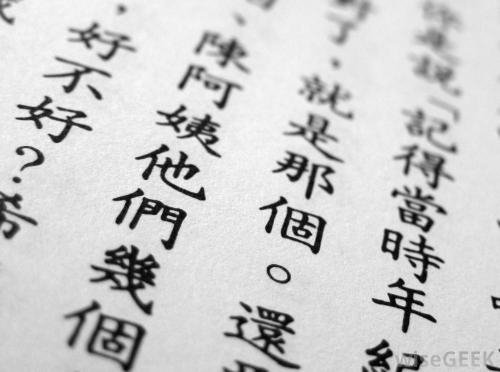 你是說「記得當時年紀
對了，就是那個。還
、陳阿姨他們幾個
，好不好？希
wiseGEEK